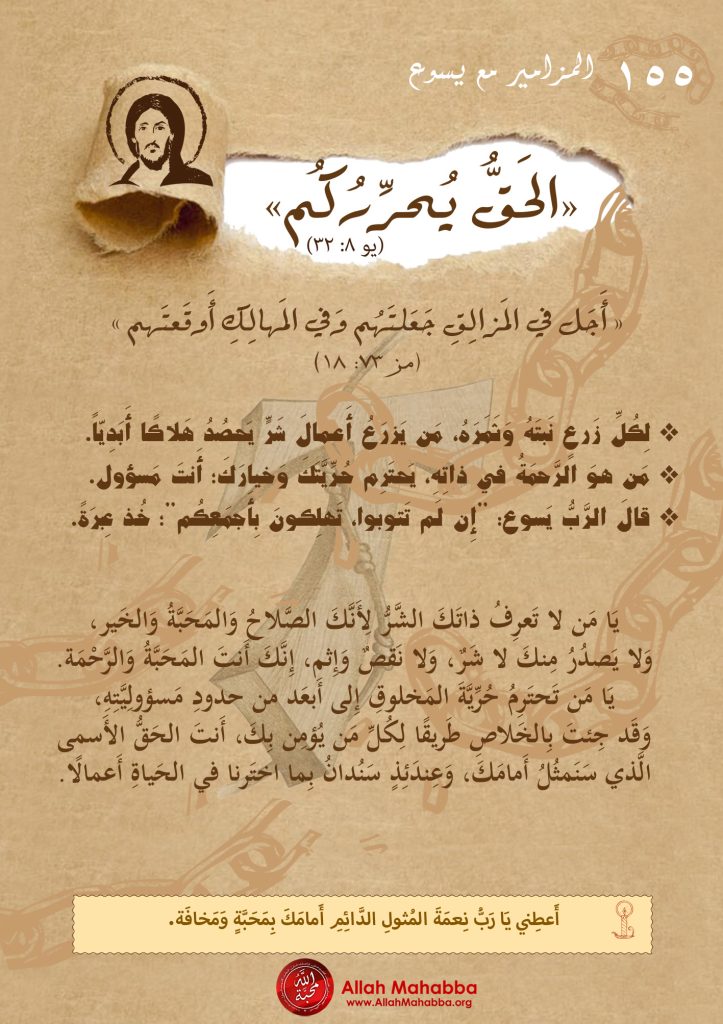 ١٥٥ المزامير مع يسوع
«الحَقُّ يُحرِّرُكُم»
(يو ٨: ٣٢)
« أَجَل في المَزالِقِ جَعَلتَهُم وَفي المَهالِكِ أَوقَعتَهم »
(مز ٧٣: ١٨)
❖ لِكُلِّ زَرعٍ نَبتَهُ وَثَمَرَهُ، مَن يَزرَعُ أَعمالَ شَرٍّ يَحصُدُ هَلاكًا أَبَدِيّاً.
❖ مَن هوَ الرَّحمَةُ في ذاتِهِ، يَحتَرِم حُرِّيَّتَك وخيارَكَ؛ أَنتَ مَسؤول.
❖ قالَ الرَّبُّ يَسوع: "إِن لَم تَتوبوا، تَهلِكونَ بِأَجمَعِكُم"؛ خُذ عِبرَةً.
يَا مَن لا تَعرِفُ ذاتَكَ الشَّرُّ لِأَنَّكَ الصَّلاحُ وَالمَحَبَّةُ وَالخَير،
وَلا يَصدُرُ مِنكَ لا شَرٌ، وَلا نَقصٌ وَإِثم، إِنَّكَ أَنتَ المَحَبَّةُ وَالرَّحْمَة.
يَا مَن تَحتَرِمُ حُرِّيَةَ المَخلوقِ إِلى أَبعَد من حدودِ مَسؤوليَّتِهِ،
وَقَد جِئتَ بِالخَلاصِ طَريقًا لِكُلِّ مَن يُؤمِن بِكَ، أَنتَ الحَقُّ الأَسمى
الَّذي سَنَمثُلُ أَمامَكَ، وَعِندَئِذٍ سَنُدانُ بِما اختَرنا في الحَياةِ أَعمالًا.
أَعطِني يَا رَبُّ نِعمَةَ المُثولِ الدَّائِمِ أَمامَكَ بِمَحَبَّةٍ وَمَخافَة.
الله محبة
Allah Mahabba
www.AllahMahabba.org